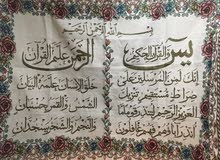 بسم الله الرحمن الرحيم
يس والقرآن الحكيم
انك لمن المرسلين على
صراط مستقيم تنزيل
العزيز الرحيم لتنذر قوما ما
انذر آباؤهم فهم غافلون
الرحمن علم القرآن
خلق الإنسان علمه البيان
الشمس والقمر بحسبان
والنجم والشجر يسجدان